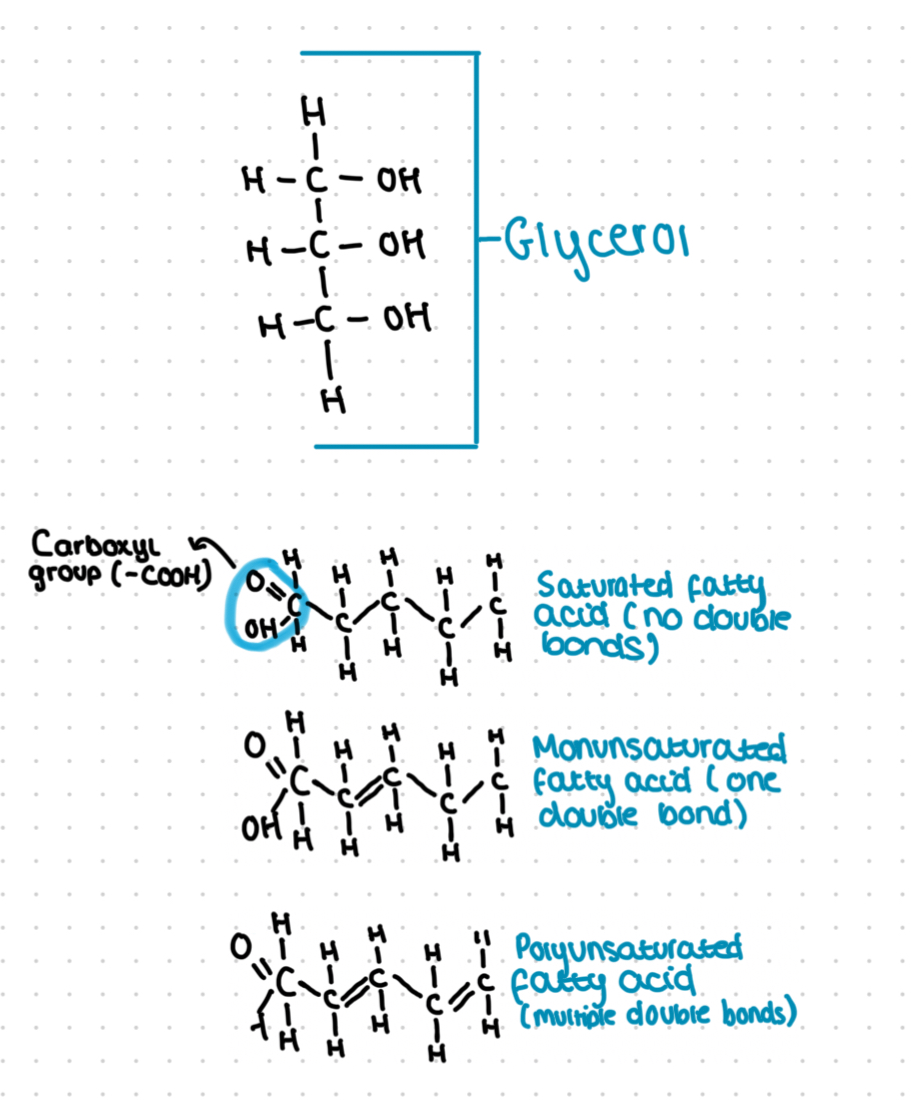 H
H - C - OH
H - C - OH
H - C - OH
H
Glycerol
Carboxyl
group (-COOH)
H H H H H
O C C C C C
OH H H H H H
Saturated fatty
acid (no double
bonds)
H H H H H
O C C C C C
OH H H H H H
Monunsaturated
fatty acid (one
double bond)
H H H H
O C C C C C
H H H H H
Polyunsaturated
fatty acid
(multiple double bonds)